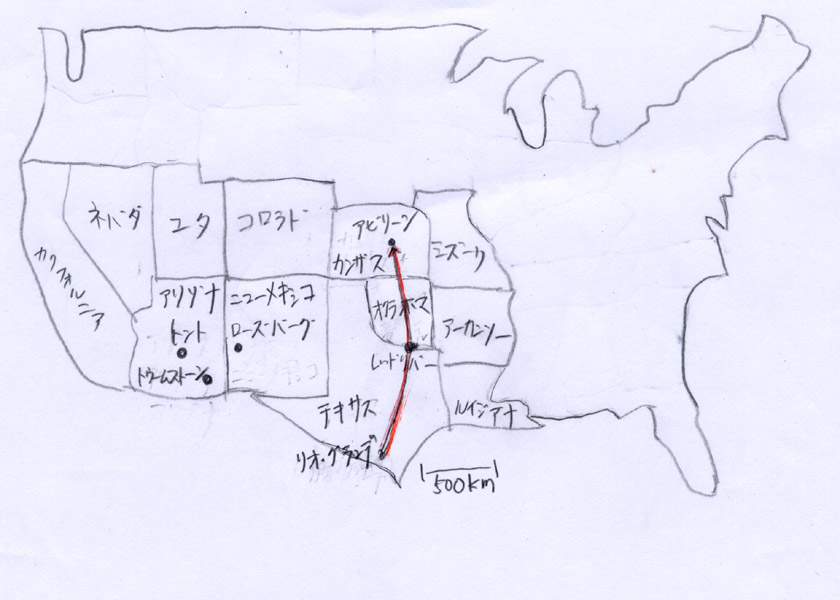 アビリーン
ネバダ
ユタ
コロラド
ミズーリ
カンザス
カリフォルニア
アリゾナ
ニューメキシコ
オクラホマ
トント
ローズバーグ
アーカンソー
レッドリバー
トゥームストーン
テキサス
ルイジアナ
リオ・グランデ
500km